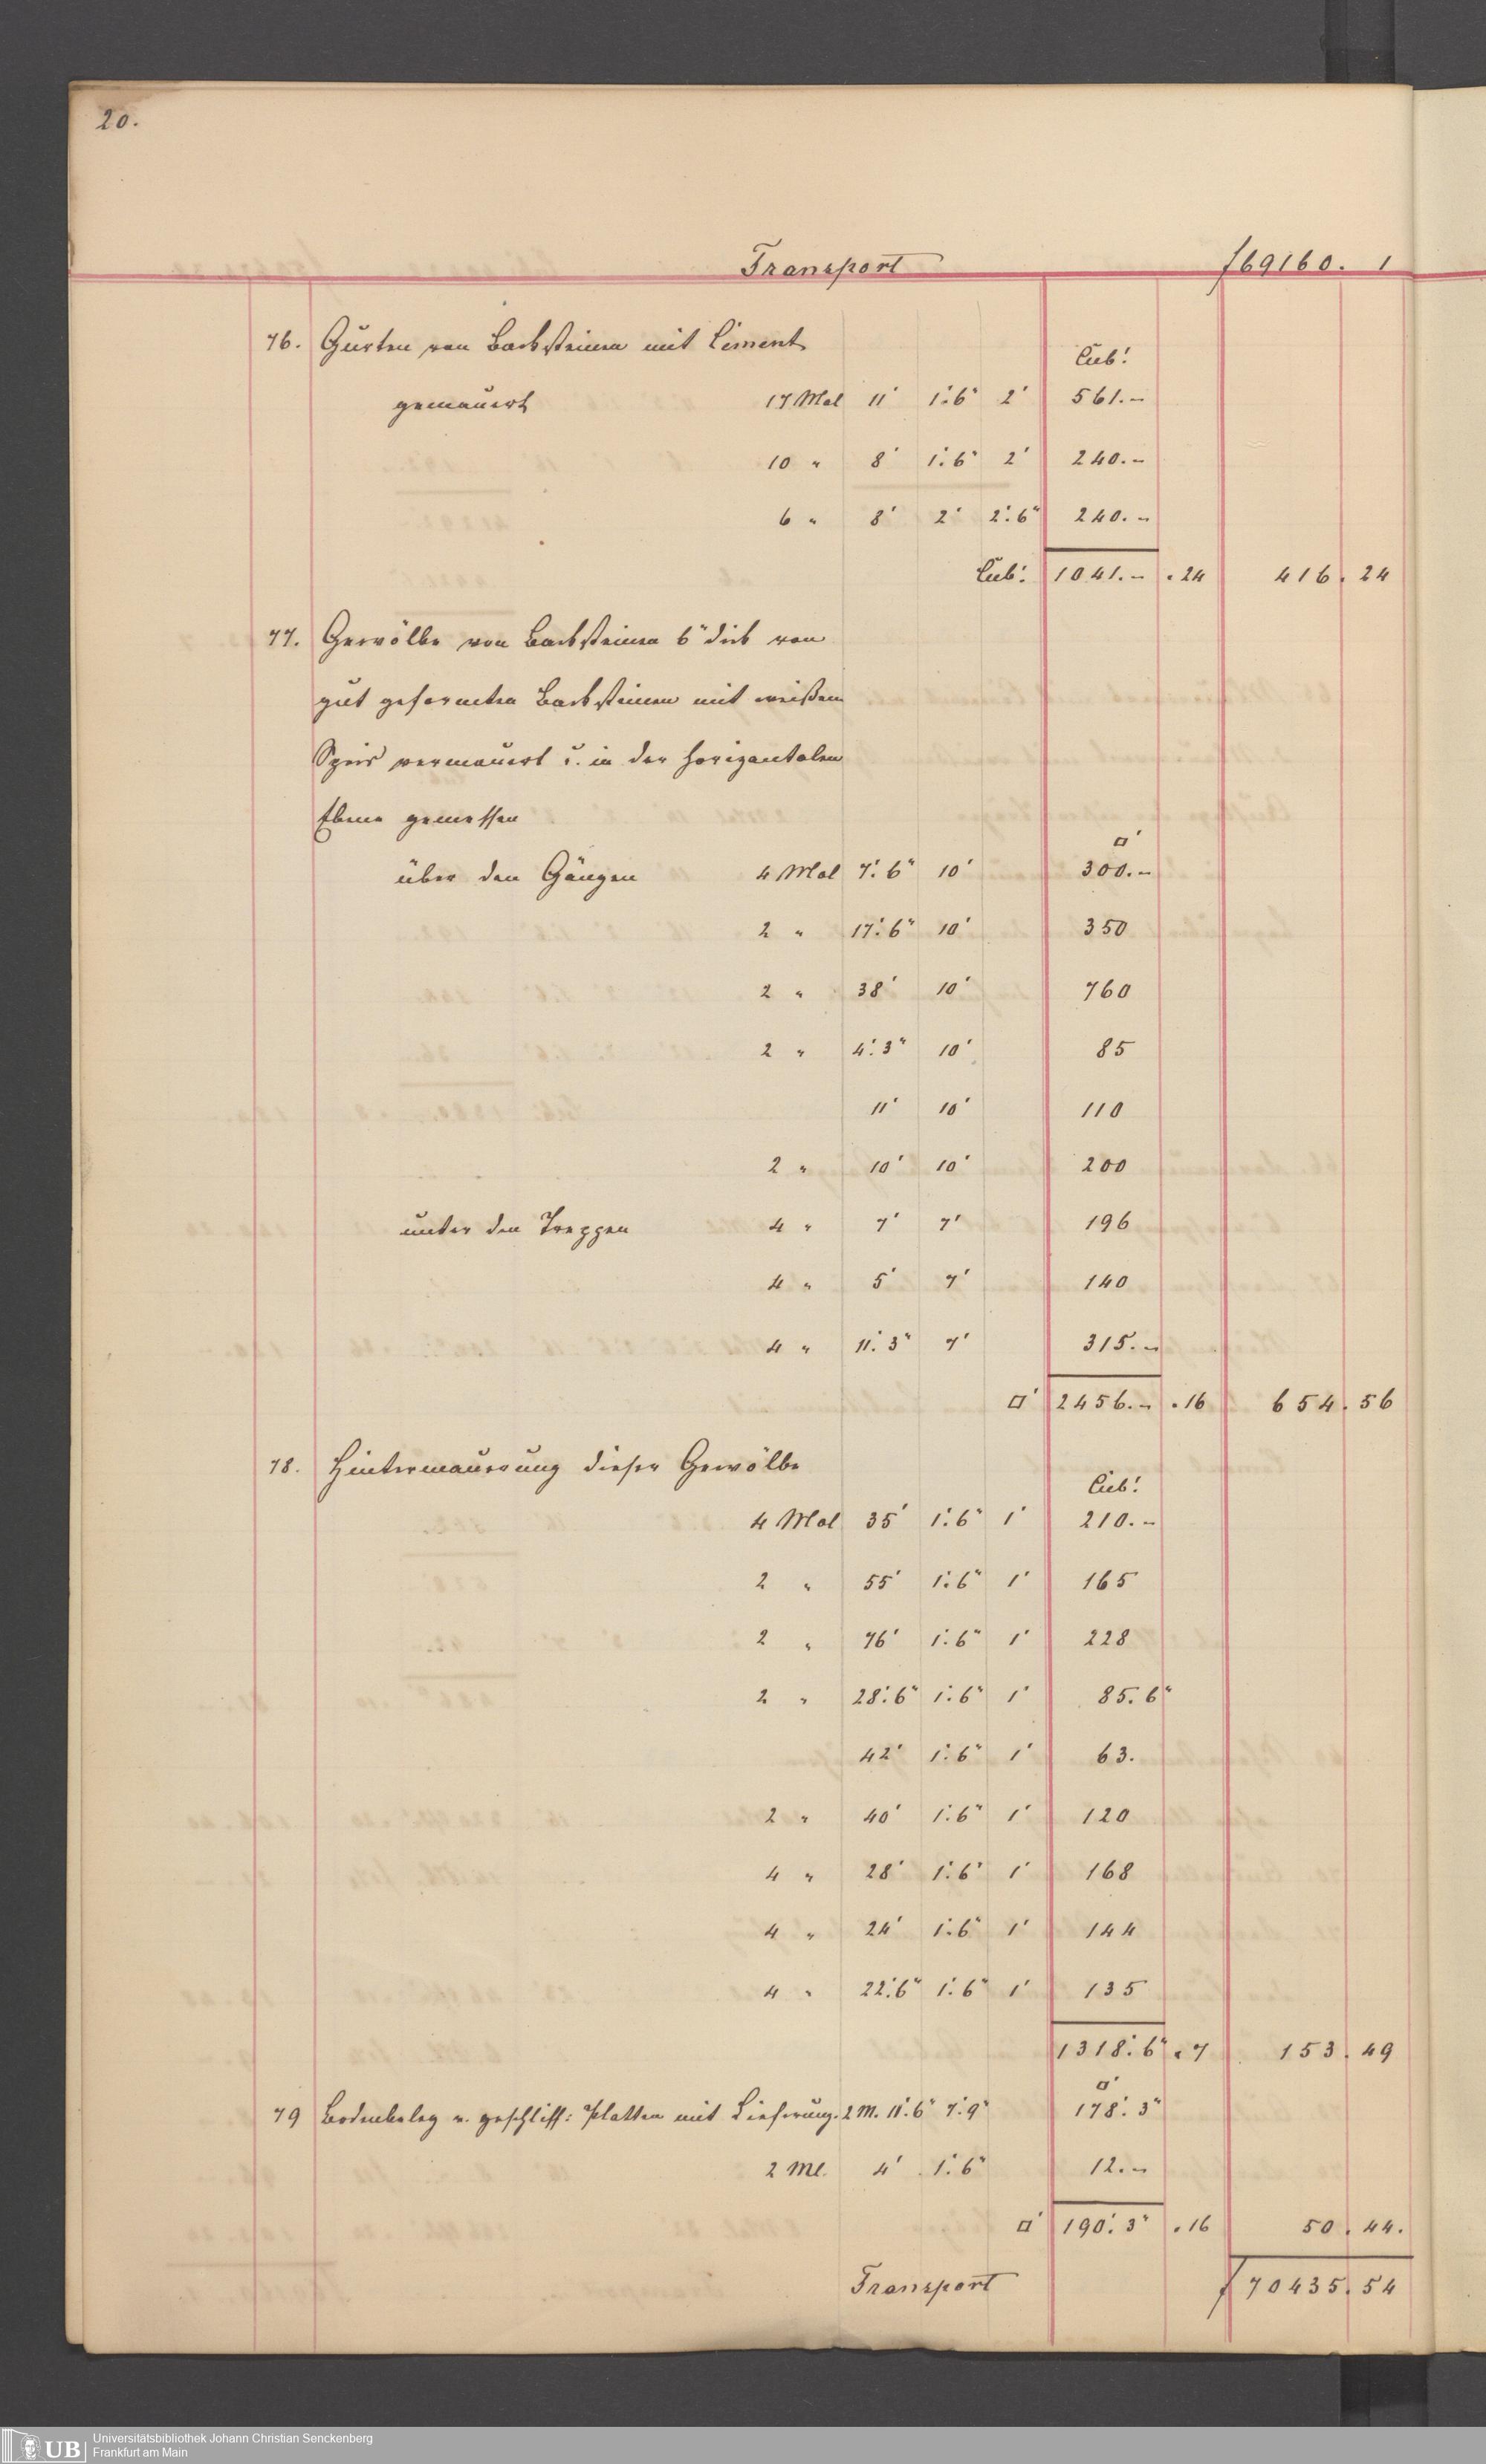 20.
Transport f 69160. 1
76. Gurten von Backsteinen mit Ciment
Cub.'
gemauert 17 Mal 11' 1'.6" 2' 561.–
10 " 8' 1'.6" 2' 240.–
6 " 8' 2' 2'.6" 240.–
Cub.' 1041.– . 24 416. 24
77. Gewölbe von Backsteinen 6" dick von
gut geformten Backsteinen mit weißem
Speis vermauert u. in der horizontalen
Ebene gemessen
□'
über den Gängen 4 Mal 7'.6" 10' 300.–
2 " 17'.6" 10' 350
2 " 38' 10' 760
2 " 4'.3" 10' 85
11' 10' 110
2 " 10' 10' 200
unter den Treppen 4 " 7' 7' 196
4 " 5' 7' 140
4 " 11'.3" 7' 315.–
□' 2456.– . 16 654. 56
78. Hintermauerung dieser Gewölbe
Cub.'
4 Mal 35' 1'.6" 1' 210.–
2 " 55' 1'.6" 1' 165
2 " 76' 1'.6" 1' 228
2 " 28'.6" 1'.6" 1' 85.6"
42' 1'.6" 1' 63.
2 " 40' 1'.6" 1' 120
4 " 28' 1'.6' 1' 168
4 " 24' 1'.6' 1' 144
4 " 22'.6" 1'.6" 1' 135
1318'.6" . 7 153. 49
□'
79 Bodenbeleg v. geschliff: Platten mit Lieferung. 2 M. 11'.6" 7'.9" 178'. 3"
2 Ml. 4' 1'.6" 12.–
□' 190'. 3" . 16 50. 44.
Transport f 70435. 54
UB
Universitätsbibliothek Johann Christian Senckenberg
Frankfurt am Main